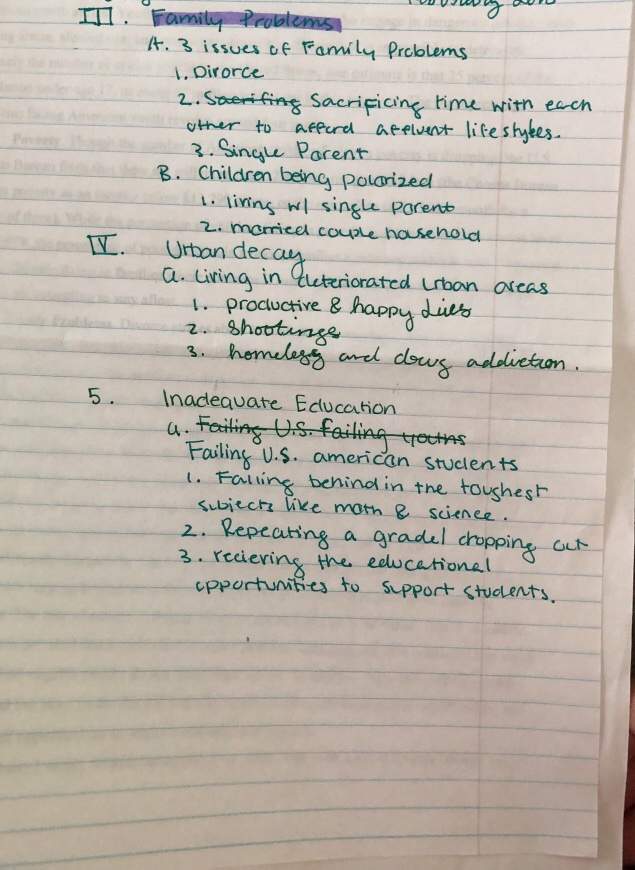 III. Family Problems
A. 3 issues of Family Problems
1. Divorce
2. Sacrifing Sacrificing time with each
other to afferd affluent lifestyles.
3. Single Parent
B. Children being polarized
1. living w/ single parent
2. married couple household
IV. Urban decay
a. Living in deteriorated urban areas
1. productive & happy lives
2. Shootings
3. homeless and drug addiction.
5. Inadequate Education
a. Failing U.S. failing youths
Failing U.S. american students
1. Falling behind in the toughest
subjects like math & science.
2. Repeating a grade/ dropping out
3. recieving the educational
opportunities to support students.